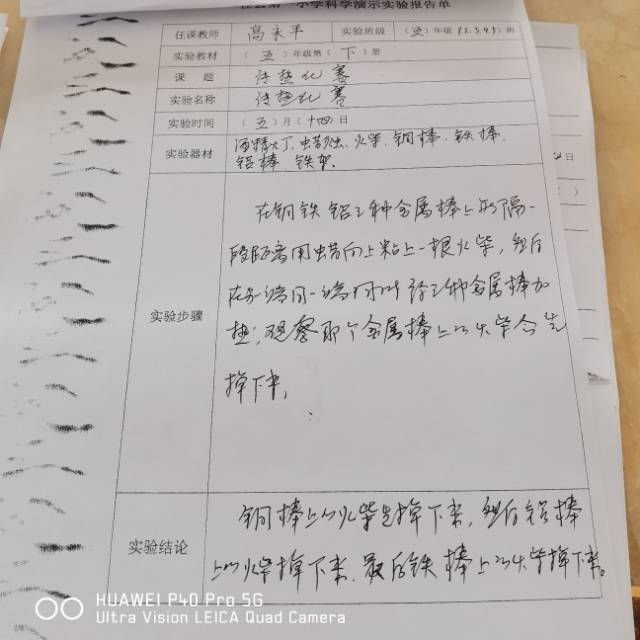 小学科学演示实验报告单
任课教师 高永平 实验班级 (五)年级(1.2.3.4.5)班
实验教材 (五)年级第(下)册
课 题 传热比赛
实验名称 传热比赛
实验时间 (五)月(十四)日
实验器材 酒精灯、蜡烛、火柴、铜棒、铁棒、
铝棒 铁架
实验步骤
在铜铁铝三种金属棒上每隔一
段距离用蜡向上粘上一根火柴,然后
在另一端同一端同时给三种金属棒加
热;观察那个金属棒上的火柴会先
掉下来。
实验结论
铜棒上的火柴先掉下来,然后铝棒
上的火柴掉下来,最后铁棒上的火柴掉下来。
日
HUAWEI P40 Pro 5G
Ultra Vision LEICA Quad Camera